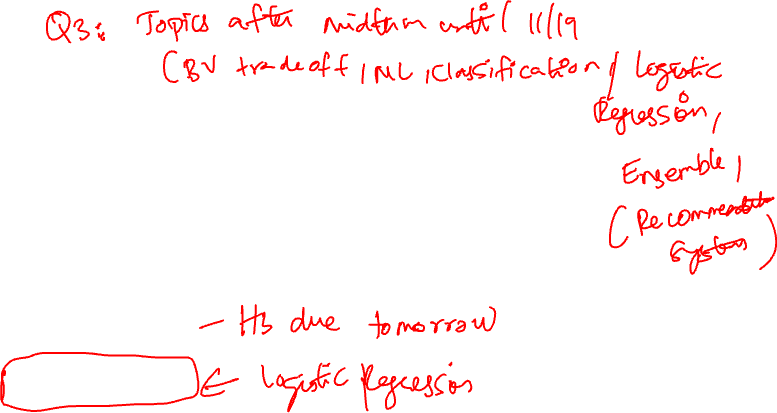 Q3: Topics after midterm until 11/19
(BV tradeoff, ML, Classification, Logistic
Regression,
Ensemble,
(Recommendation
Systems)
- H3 due tomorrow
← Logistic Regression